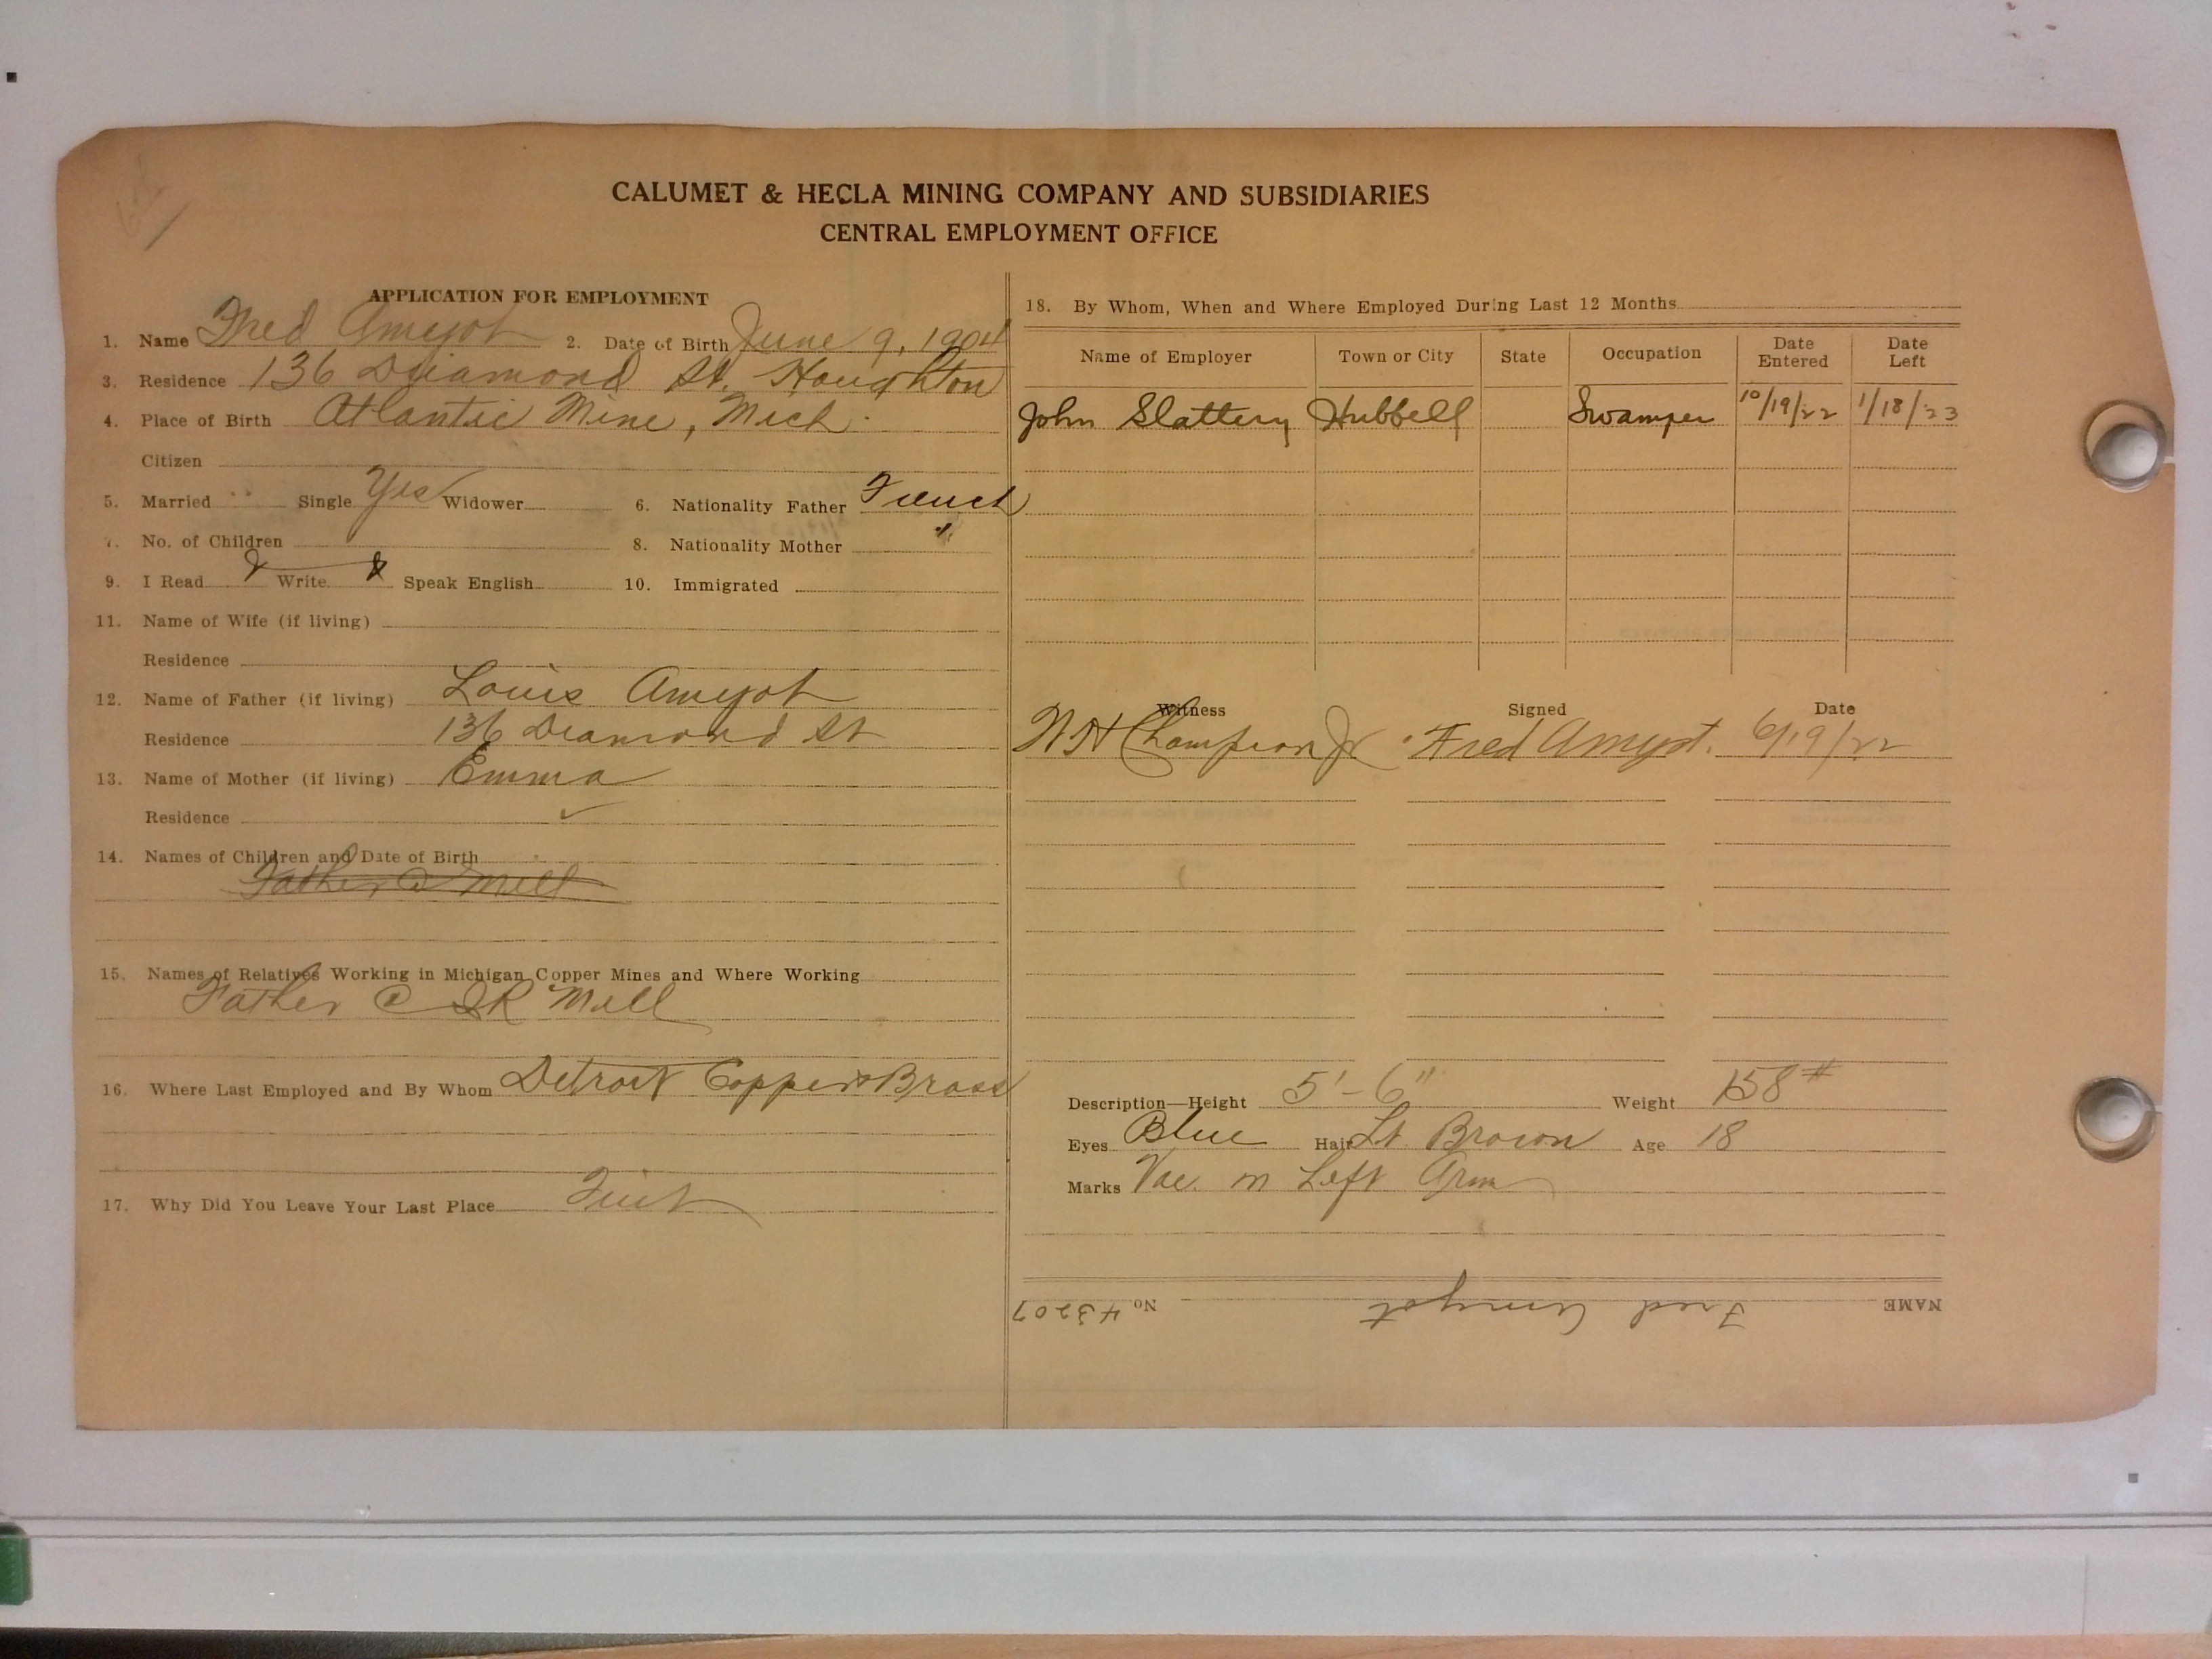 CALUMET & HECLA MINING COMPANY AND SUBSIDIARIES
CENTRAL EMPLOYMENT OFFICE
APPLICATION FOR EMPLOYMENT
1. Name Fred Amyot 2. Date of Birth June 9, 1904
3. Residence 136 Diamond St. Houghton
4. Place of Birth Atlantic Mine, Mich.
Citizen
5. Married Single Yes Widower 6. Nationality Father French
7. No. of Children 8. Nationality Mother "
9. I Read Write Speak English 10. Immigrated
11. Name of Wife (if living)
Residence
12. Name of Father (if living) Louis Amyot
Residence 136 Diamond St
13. Name of Mother (if living) Emma
Residence ✓
14. Names of Children and Date of Birth
Father @ Mill
15. Names of Relatives Working in Michigan Copper Mines and Where Working
Father C&R Mill
16. Where Last Employed and By Whom Detroit Copper & Brass
17. Why Did You Leave Your Last Place Quit
18. By Whom, When and Where Employed During Last 12 Months
Name of Employer Town or City State Occupation Date Entered Date Left
John Slattery Hubbell Swamper 10/19/22 1/18/23
Witness Signed Date
W H Champion Jr Fred Amyot. 6/19/22
Description—Height 5'-6" Weight 158#
Eyes Blue Hair Lt. Brown Age 18
Marks Vac. on Left Arm
NAME Fred Amyot No. 43207